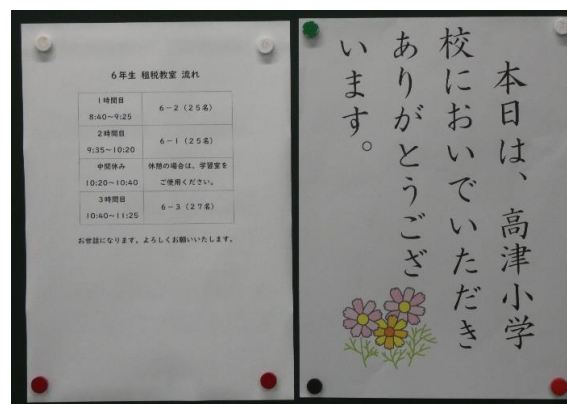 6年生 租税教室 流れ
1時間目
8:40~9:25
6-2(25名)
2時間目
9:35~10:20
6-1(25名)
中間休み
10:20~10:40
休憩の場合は、学習室を
ご使用ください。
3時間目
10:40~11:25
6-3(27名)
お世話になります。よろしくお願いいたします。
本日は、高津小学
校においでいただき
ありがとうござ
います。